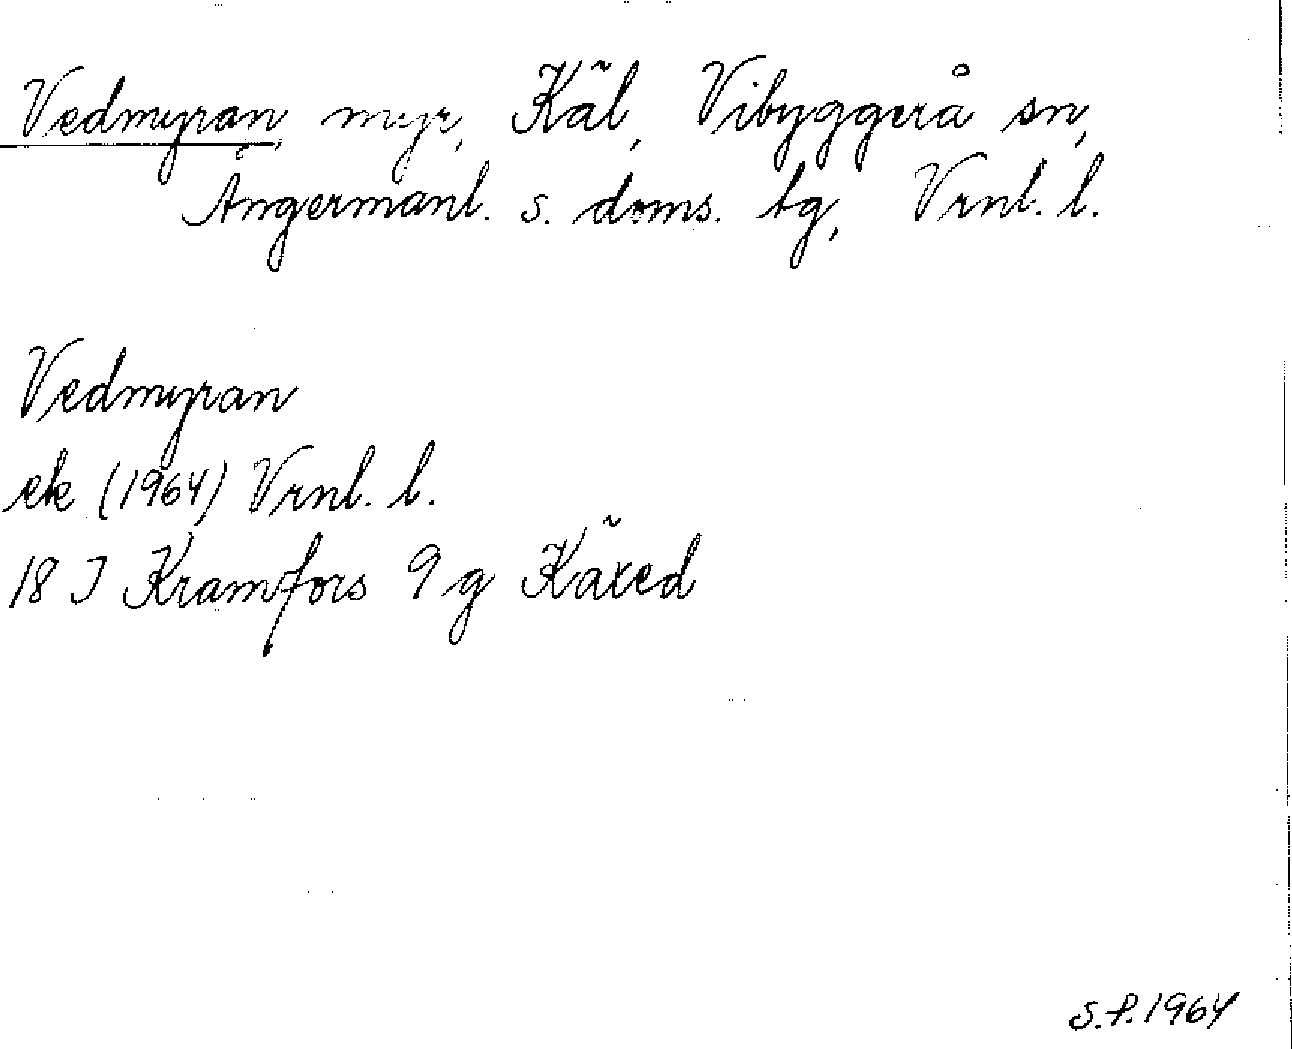 Vedmyran, myr, Käl, Vibyggerå sn,
Ångermanl. s. doms. tg, Vrnl. l.
Vedmyran
ek (1964) Vrnl. l.
18 J Kramfors 9 g Käxed
S.P. 1964